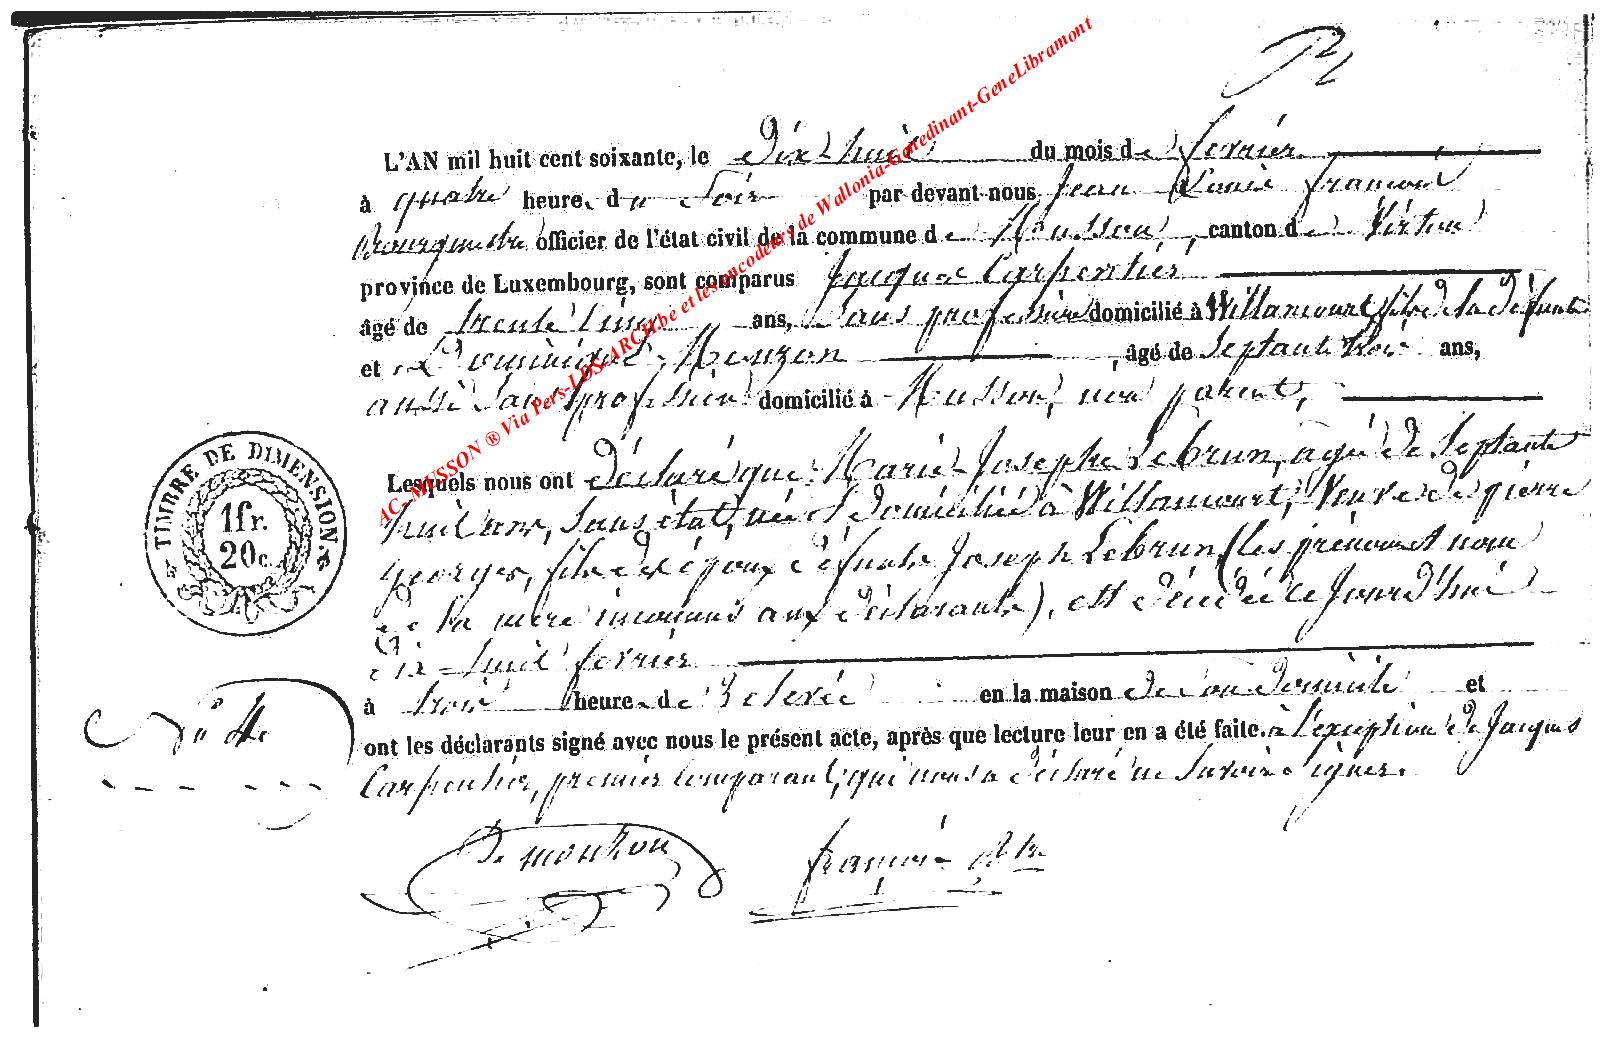 L'AN mil huit cent soixante, le dix huit du mois de fevrier
à quatre heures du soir par devant nous Jean Louis François
Bourgmestre officier de l'état civil de la commune de Musson, canton de Virton
province de Luxembourg, sont comparus Jacques Carpentier
âgé de trente cinq ans, sans profession domicilié à Willancourt, fils de la défunte
et Dominique Mouzon, âgé de septante trois ans,
aussi sans profession domicilié à Musson, non parent,
Lesquels nous ont déclaré que Marie Josephe Lebrun, agée de septante
huit ans, sans état, née et domiciliée à Willancourt, veuve de pierre
georges, fille des époux défunts Joseph Lebrun (les prénoms et nom
de la mère inconnus aux déclarants), est décédée ce jourd'hui
dix-huit fevrier
à trois heures de relevée en la maison de son domicile et
ont les déclarants signé avec nous le présent acte, après que lecture leur en a été faite à l'exception de Jacques
Carpentier, premier comparant, qui nous a déclaré ne savoir signer.
D. mouzon françois
TIMBRE DE DIMENSION.
1 fr.
20 c.
N° 4
AC-MUSSON ® Via Pers-LDS-ARCH.be et les encodeurs de Wallonia-Genedinant-GeneLibramont